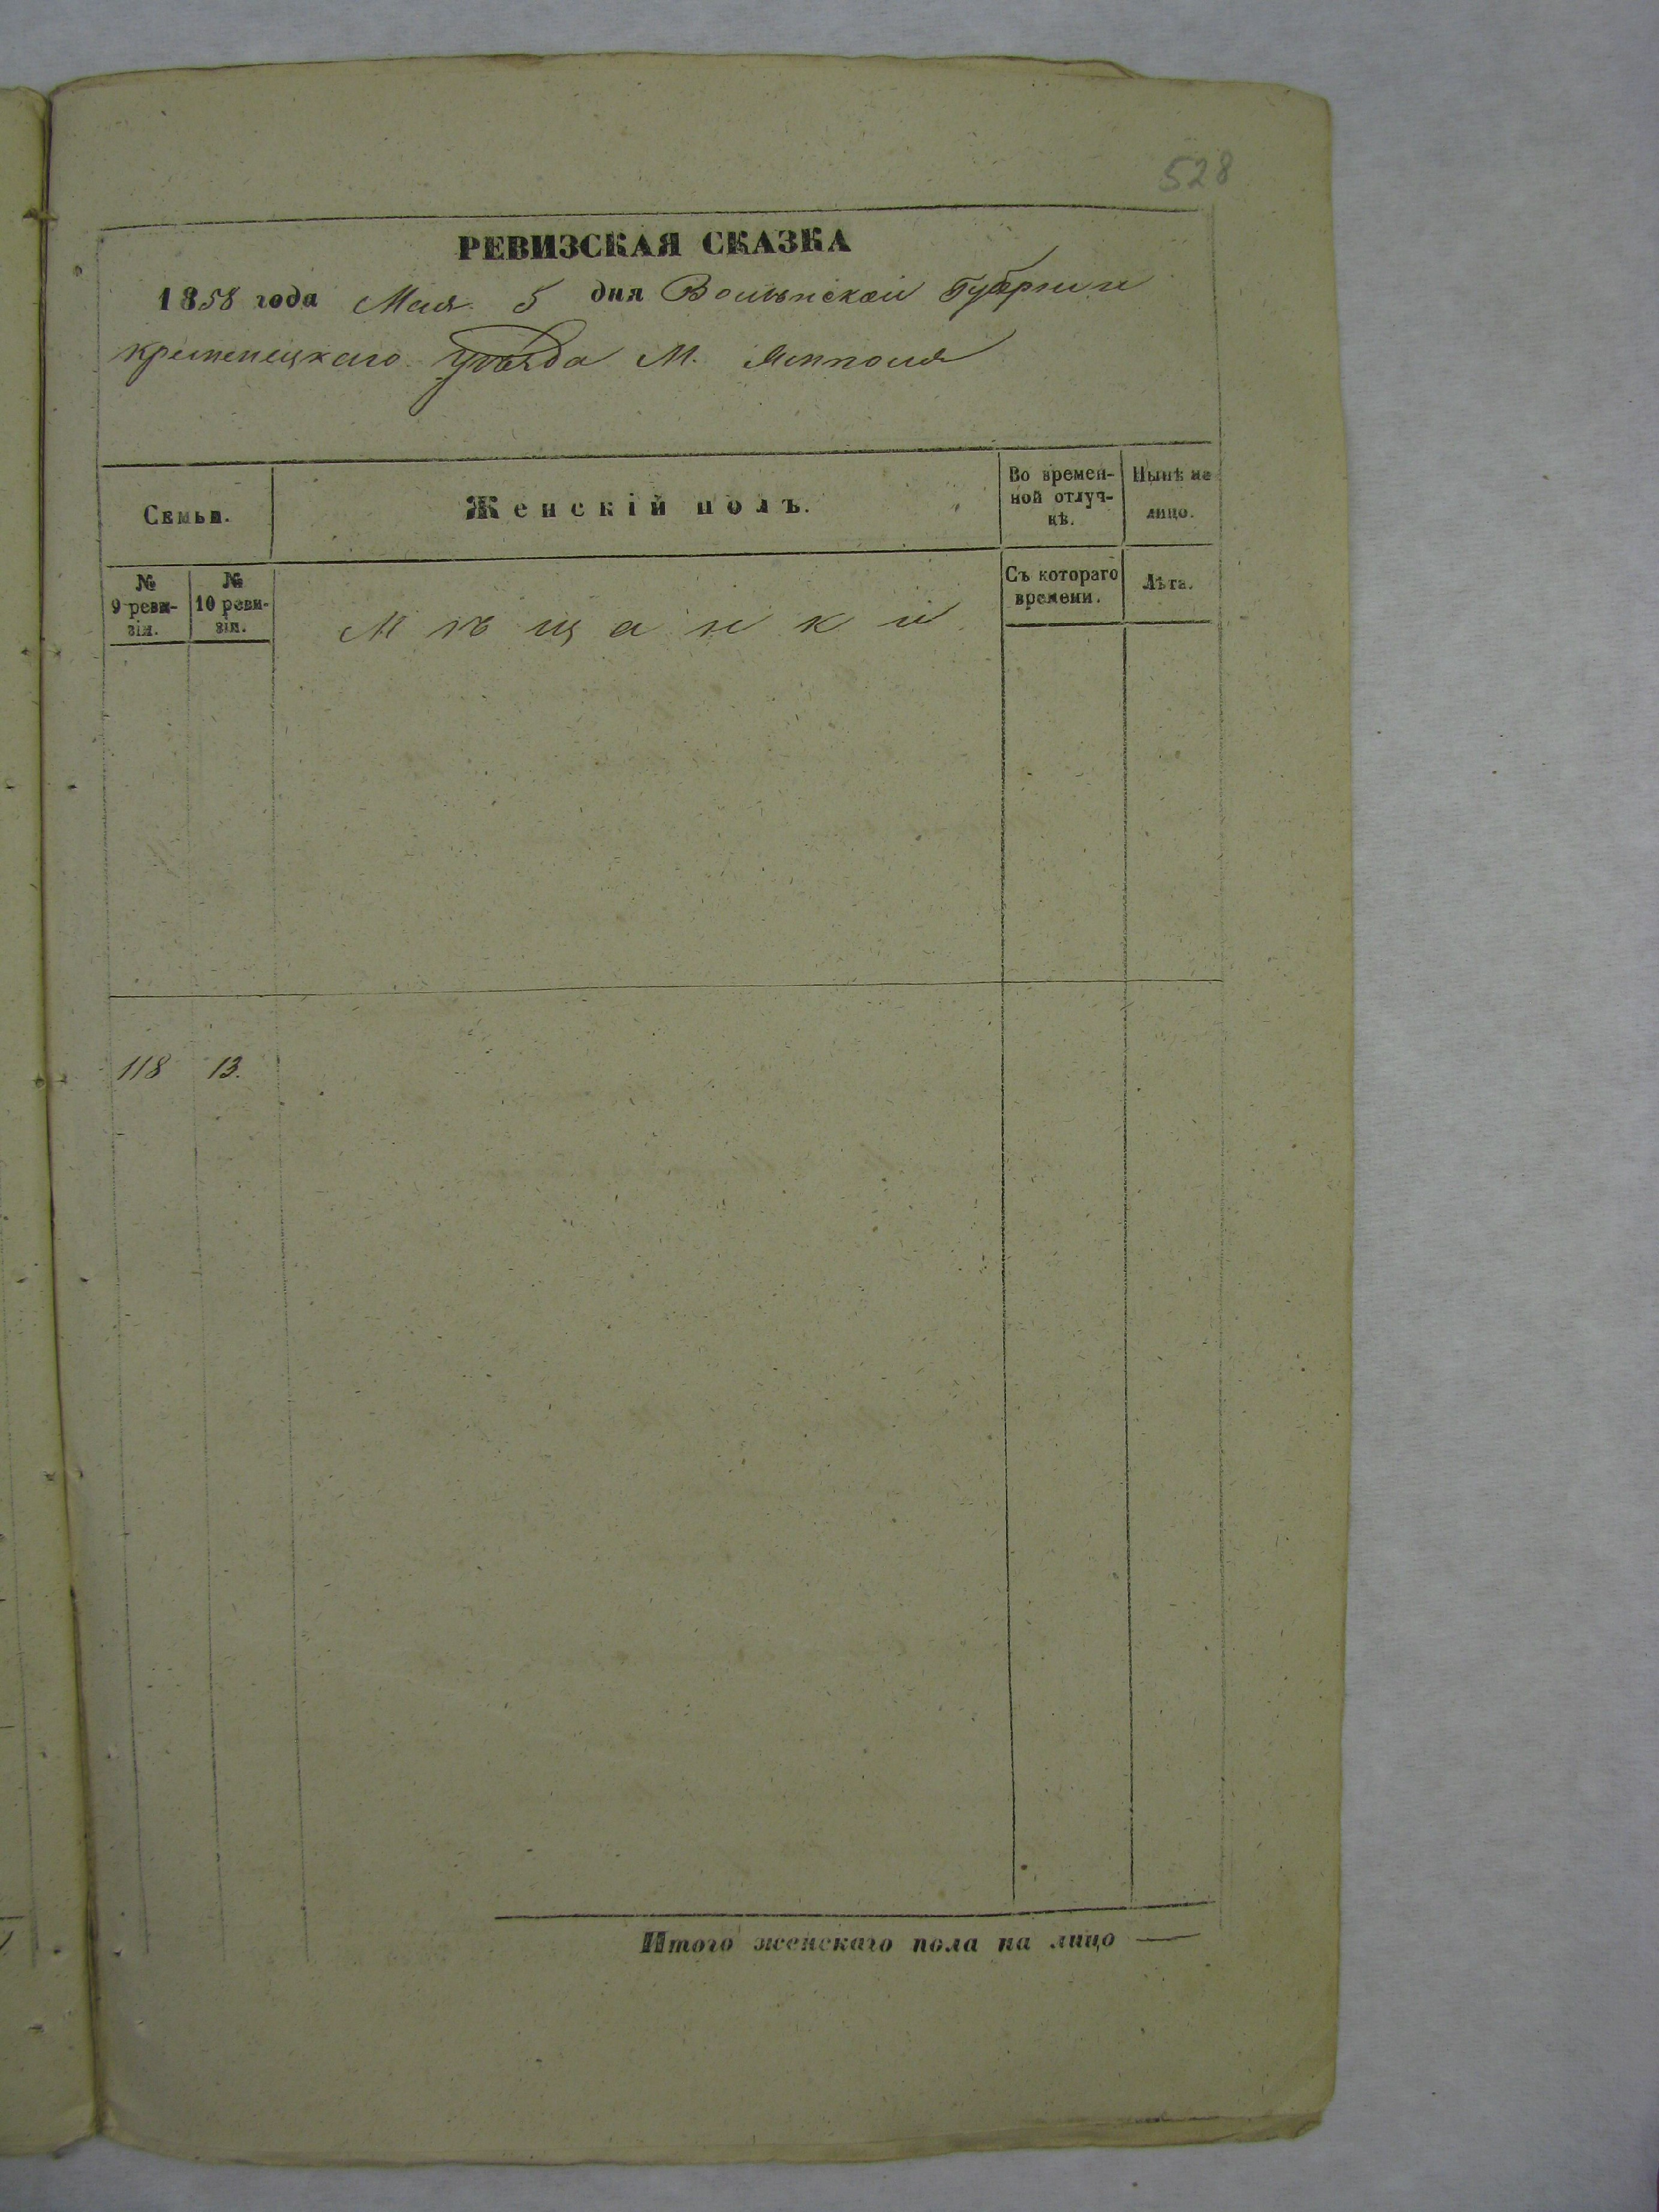 528
РЕВИЗСКАЯ СКАЗКА
1858 года Мая 5 дня Волынской Губернии
Кременецкаго Уѣзда М. Ямполя
Семьи.
Женскій полъ.
Во времен-
ной отлуч-
кѣ.
Нынѣ на
лицо.
№
9 реви-
зіи.
№
10 реви-
зіи.
Мѣщанки
Съ котораго
времени.
Лѣта.
118 13.
Итого женскаго пола на лицо —